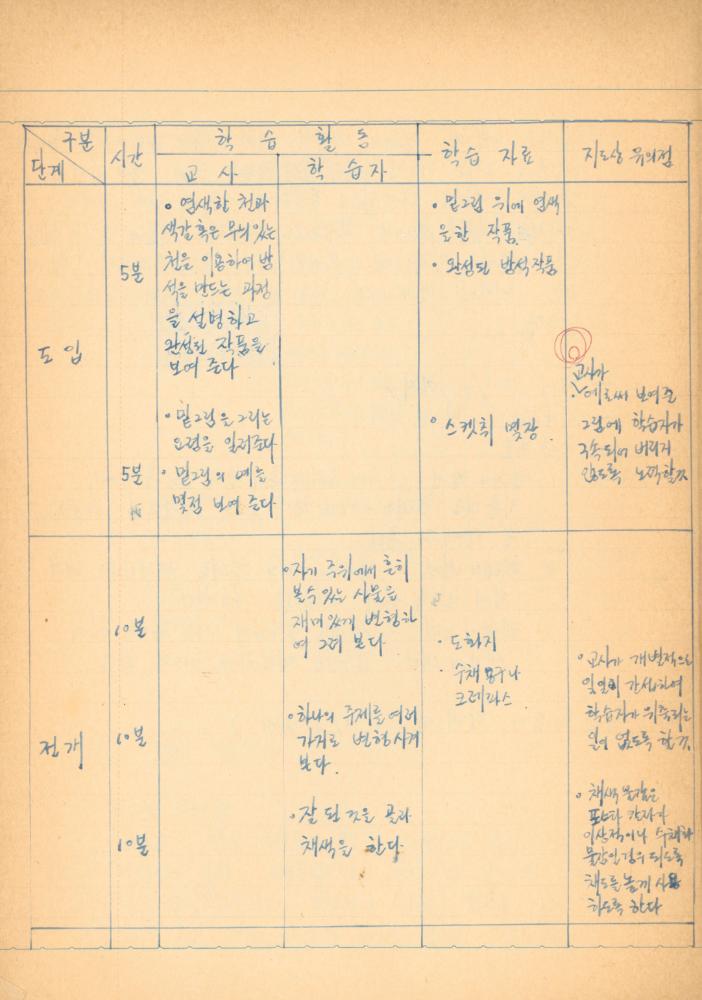 구분
단계
시간
학습 활동
교사
학습자
학습 자료
지도상 유의점
도입
5분
• 염색한 천과
색갈 혹은 무늬 있는
천을 이용하여 방
석을 만드는 과정
을 설명하고
완성된 작품을
보여 준다
• 밑그림 위에 염색
을 한 작품
• 완성된 방석작품
5분
• 밑그림을 그리는
요령을 일러준다
• 밑그림의 예를
몇점 보여 준다
• 스켓취 몇장.
교사가
예로써 보여준
그림에 학습자가
구속되어 버리지
않도록 노력할것
전개
10분
• 자기 주위에서 흔히
볼수있는 사물을
재미있게 변형하
여 그려 본다
• 도화지
• 수채 도구나
크레파스
10분
• 하나의 주제를 여러
가지로 변형시켜
본다.
• 교사가 개별적으로
일일히 간섭하여
학습자가 위축되는
일이 없도록 할것
10분
• 잘 된 것을 골라
채색을 한다
• 채색 물감은
포스타 칼라가
이상적이나 수채화
물감인 경우 되도록
채도를 높게 사용
하도록 한다